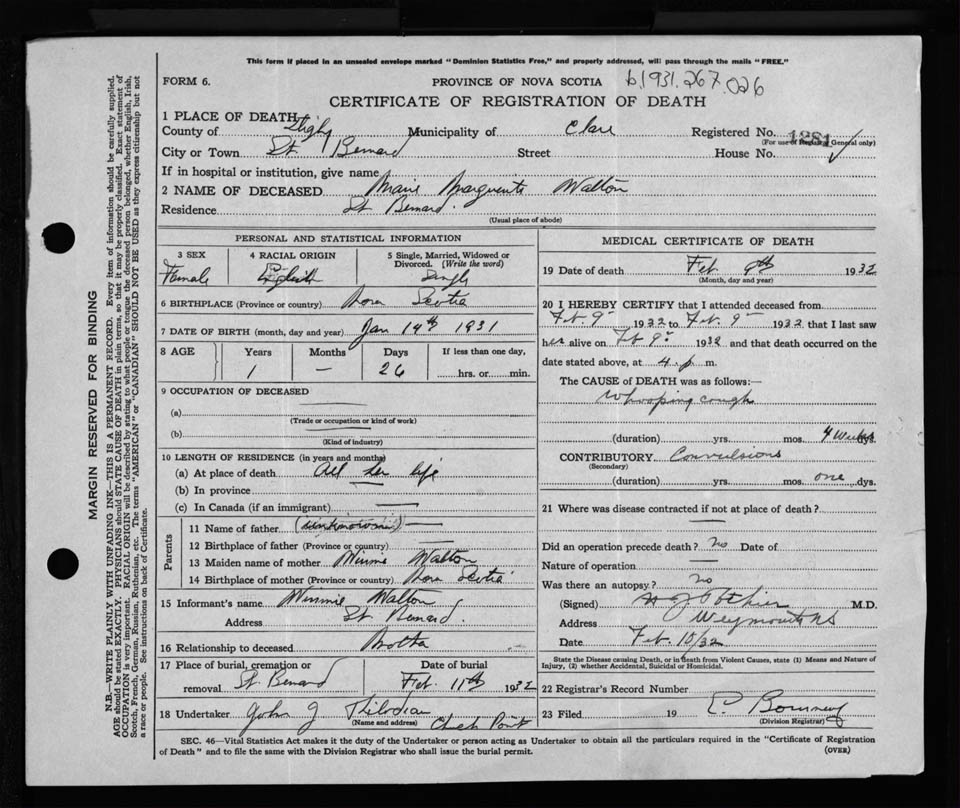 This form if placed in an unsealed envelope marked "Dominion Statistics Free," and properly addressed, will pass through the mails "FREE."
FORM 6. PROVINCE OF NOVA SCOTIA b1931.267.026
CERTIFICATE OF REGISTRATION OF DEATH
1 PLACE OF DEATH
County of Digby Municipality of Clare Registered No. 1281
(For use of Registrar General only)
City or Town St. Bernard Street House No.
If in hospital or institution, give name
2 NAME OF DECEASED Marie Marguerite Walton
Residence St. Bernard.
(Usual place of abode)
PERSONAL AND STATISTICAL INFORMATION
3 SEX 4 RACIAL ORIGIN 5 Single, Married, Widowed or Divorced. (Write the word)
Female English Single
6 BIRTHPLACE (Province or country) Nova Scotia
7 DATE OF BIRTH (month, day and year) Jan 14th 1931
8 AGE Years Months Days If less than one day,
1 — 26 hrs. or min.
9 OCCUPATION OF DECEASED
(a)
(Trade or occupation or kind of work)
(b)
(Kind of industry)
10 LENGTH OF RESIDENCE (in years and months)
(a) At place of death All her life
(b) In province
(c) In Canada (if an immigrant) —
Parents
11 Name of father (unknown) —
12 Birthplace of father (Province or country) —
13 Maiden name of mother Winnie Walton
14 Birthplace of mother (Province or country) Nova Scotia
15 Informant's name Winnie Walton
Address St. Bernard.
16 Relationship to deceased Mother
17 Place of burial, cremation or removal St. Bernard Date of burial Feb. 11th 1932
18 Undertaker John J Thibodeau Church Point
(Name and address)
MEDICAL CERTIFICATE OF DEATH
19 Date of death Feb 9th 1932
(Month, day and year)
20 I HEREBY CERTIFY that I attended deceased from
Feb. 9 1932 to Feb. 9 1932 that I last saw
her alive on Feb 9 1932 and that death occurred on the
date stated above, at 4 p m.
The CAUSE of DEATH was as follows:—
Whooping cough
(duration) yrs. mos. 4 weeks dys.
CONTRIBUTORY Convulsions
(Secondary)
(duration) yrs. mos. one dys.
21 Where was disease contracted if not at place of death?
—
Did an operation precede death? no Date of
Nature of operation —
Was there an autopsy? no
(Signed) Pothier M.D.
Address Weymouth NS
Date Feb. 10/32
State the Disease causing Death, or in death from Violent Causes, state (1) Means and Nature of
Injury, (2) whether Accidental, Suicidal or Homicidal.
22 Registrar's Record Number
23 Filed 19
(Division Registrar)
SEC. 46—Vital Statistics Act makes it the duty of the Undertaker or person acting as Undertaker to obtain all the particulars required in the "Certificate of Registration
of Death" and to file the same with the Division Registrar who shall issue the burial permit. (OVER)
MARGIN RESERVED FOR BINDING
N.B.—WRITE PLAINLY WITH UNFADING INK—THIS IS A PERMANENT RECORD. Every item of information should be carefully supplied.
AGE should be stated EXACTLY. PHYSICIANS should STATE CAUSE OF DEATH in plain terms, so that it may be properly classified. Exact statement of
OCCUPATION is very important. RACIAL ORIGIN will be described by stating to what people or tongue the deceased person belonged, whether English, Irish,
Scotch, French, German, Russian, Ruthenian, etc. The terms "AMERICAN" or "CANADIAN" SHOULD NOT BE USED as they express citizenship but not
a race or people. See instructions on back of Certificate.